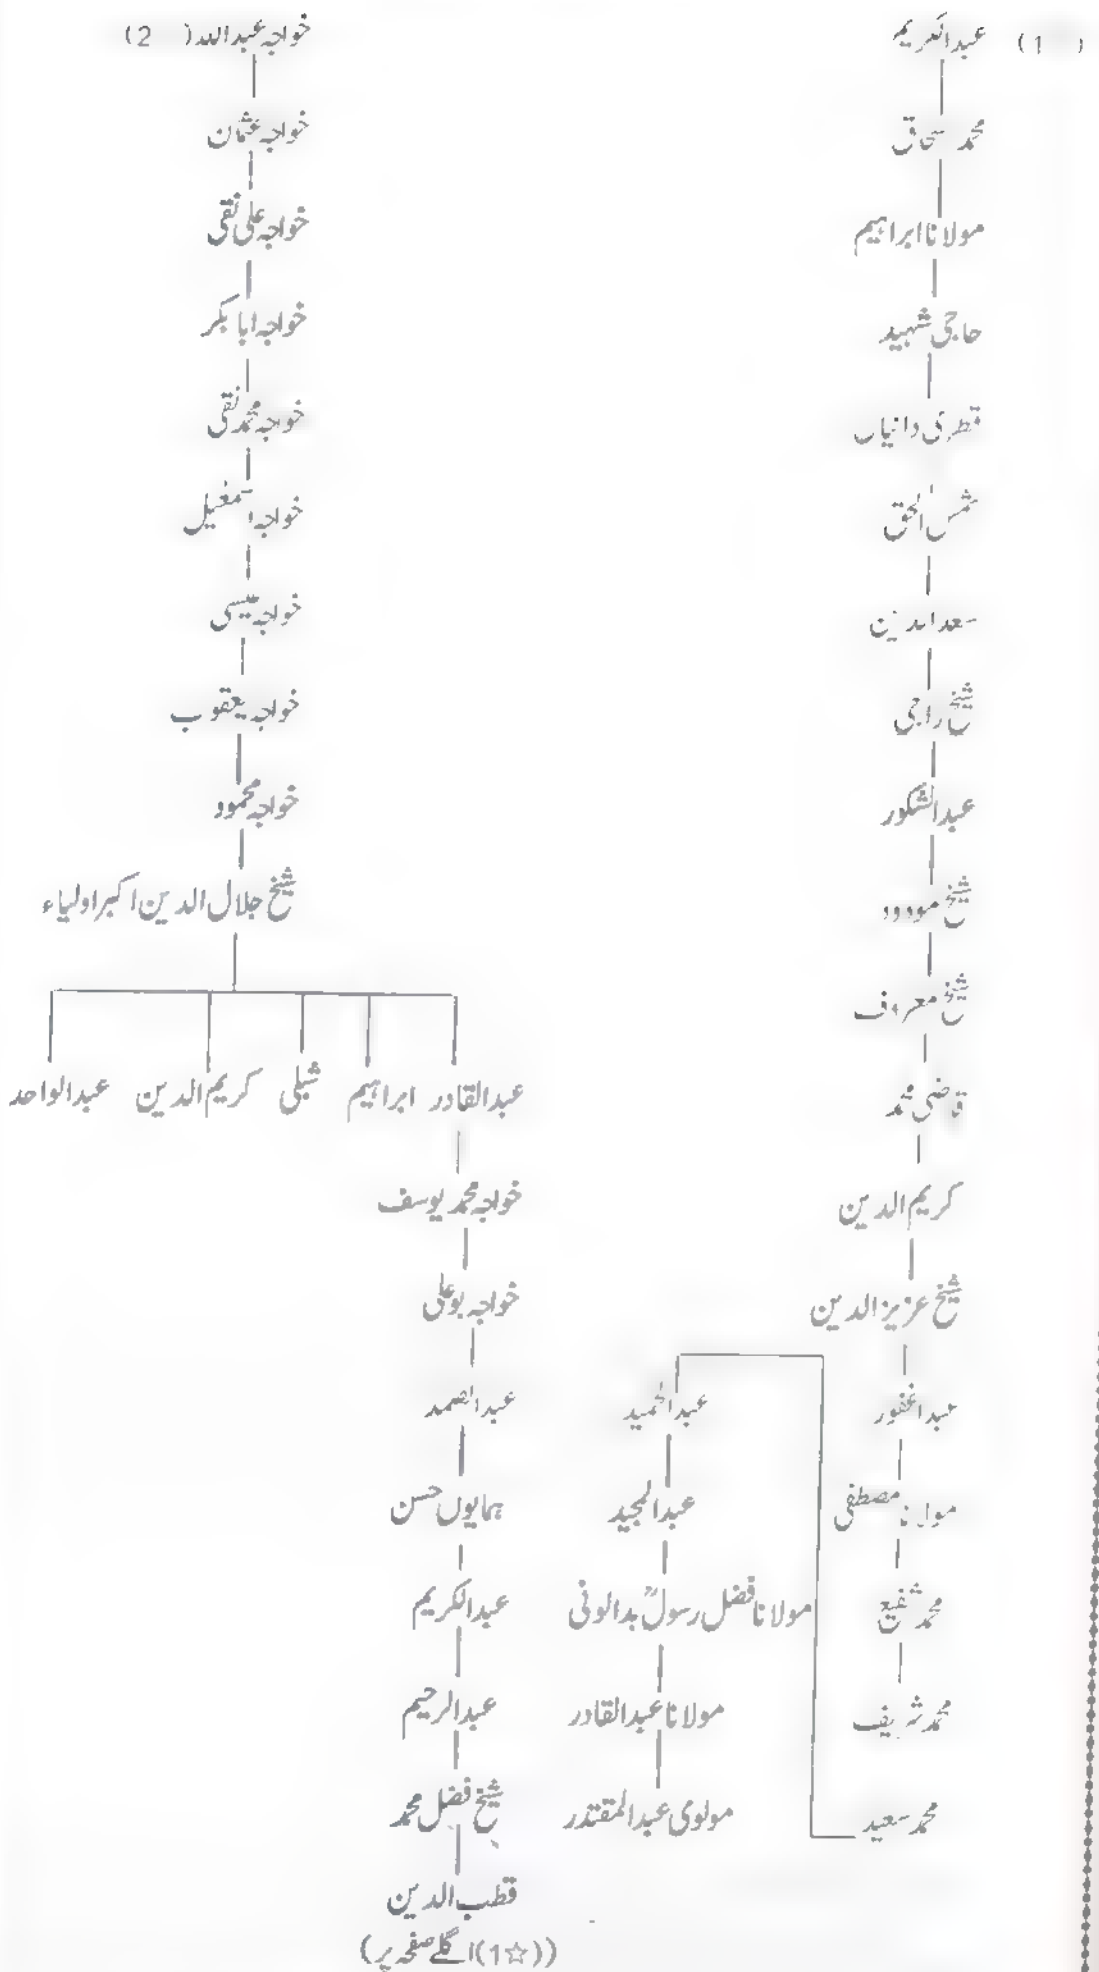 ( 1 ) عبدالکریم
محمد اسحاق
مولانا ابراہیم
حاجی شہید
قطری دانیال
شمس الحق
سعدالدین
شیخ راجی
عبدالشکور
شیخ مودود
شیخ معروف
قاضی محمد
کریم الدین
شیخ عزیز الدین
عبدالغفور
مولانا مصطفی
محمد شفیع
محمد شریف
محمد سعید
عبدالحمید
عبدالمجید
مولانا فضل رسولؒ بدالونی
مولانا عبدالقادر
مولوی عبدالمقتدر
خواجہ عبداللہ ( 2 )
خواجہ عثمان
خواجہ علی نقی
خواجہ ابا بکر
خواجہ محمد نقی
خواجہ اسمعیل
خواجہ عیسی
خواجہ یعقوب
خواجہ محمود
شیخ جلال الدین اکبر اولیاء
عبدالقادر ابراہیم شبلی کریم الدین عبدالواحد
خواجہ محمد یوسف
خواجہ بوعلی
عبدالصمد
ہمایوں حسن
عبدالکریم
عبدالرحیم
شیخ فضل محمد
قطب الدین
((☆1)اگلے صفحہ پر)